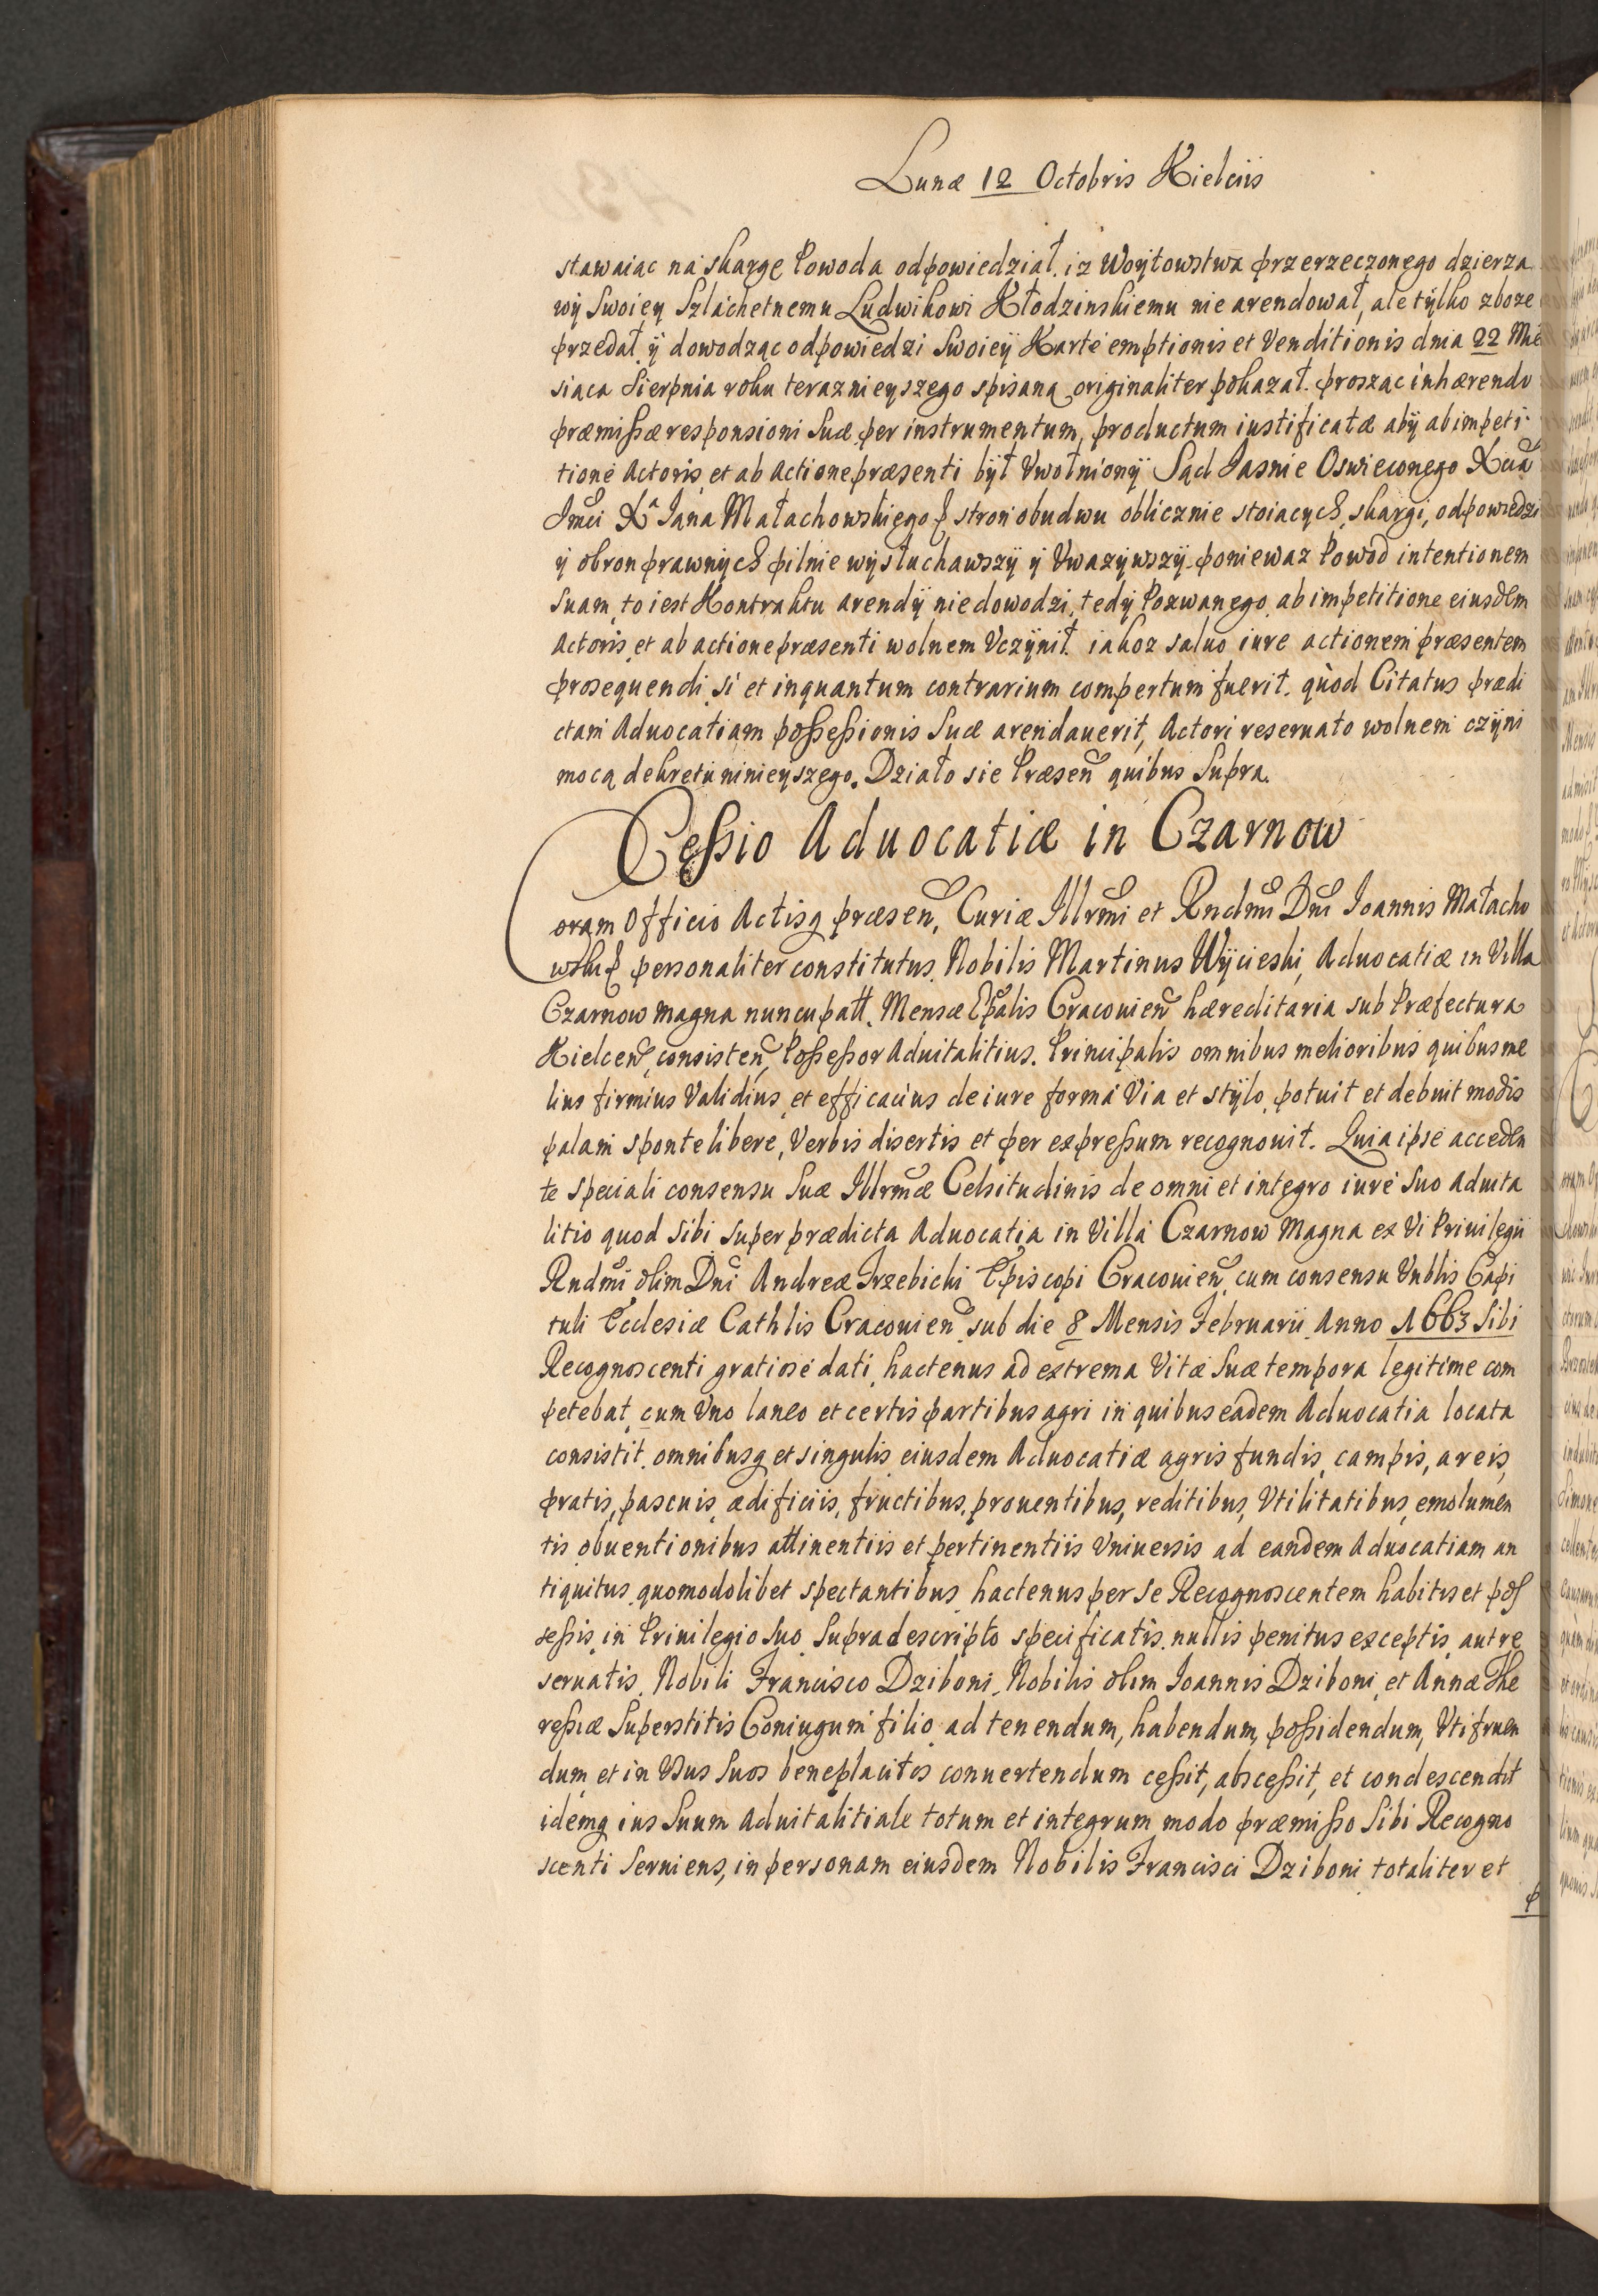 Lunæ 12 Octobris Kielciis
stawaiąc na skargę Powoda odpowiedział. iz Woytowstwa przerzeczonego dzierza
wÿ Swoiey Szlachetnemu Ludwikowi Kłodzinskiemu nie arendował, ale tÿlko zboze
przedał ÿ dowodząc odpowiedzi Swoieÿ Kartę emptionis et Venditionis dnia 22 Mie
siąca Sierpnia roku teraznieyszego spisaną originaliter pokazał. prosząc inhærendo
præmißæ responsioni Suæ per instrumentum, productum iustificatæ abÿ ab impeti
tione Actoris, et ab Actione præsenti bÿł Vwolnionÿ Sąd Jasnie Oswieconego Xcia
Jmci Xa Jana Małachowskiego p stron obudwu oblicznie stoiących, skargi, odpowiedzi
ÿ obron prawnÿch pilnie wÿsłuchawszÿ ÿ Vwazÿwszÿ. poniewaz Powod intentionem
Suam, to iest Kontraktu arendÿ nie dowodzi, tedÿ Pozwanego ab impetitione eiusdem
Actoris, et ab actione præsenti wolnem Vczÿnił. iakoz saluo iure actionem præsentem
prosequendi, si et inquantum contrarium compertum fuerit. quòd Citatus prædi
ctam Aduocatiam poßeßionis Suæ arendauerit, Actori reseruato wolnem czÿni
mocą dekretu ninieyszego. Działo sie Præsen quibus Supra.
Ceßio Aduocatiæ in Czarnow
Coram Officio Actisq præsen, Curiæ Illrmi et Rndmi Dni Ioannis Małacho
wski p personaliter constitutus Nobilis Martinus Wÿcieski, Aduocatiæ in Villa
Czarnow magna nuncupatt. Mensæ Epalis Cracouien hæreditaria sub Præfectura
Kielcen, consisten, Poßeßor Aduitalitius. Principalis omnibus melioribus quibus me
lius firmius Validius et efficacius de iure forma Via et stÿlo potuit et debuit modis
palam sponte libere, Verbis disertis et per expreßum recognouit. Quia ipse acceden
te speciali consensu Suæ Illrmæ Celsitudinis de omni et integro iure Suo Aduita
litio quod sibi super prædicta Aduocatia in Villa Czarnow Magna ex Vi Priuilegii
Rndmi olim Dni Andreæ Trzebicki Episcopi Cracouien, cum consensu Vnblis Capi
tuli Ecclesiæ Cathlis Cracouien sub die 8 Mensis Februarii Anno 1663 Sibi
Recognoscenti gratiosè dati, hactenus ad extrema Vitæ Suæ tempora legitime com
petebat, cum Vno laneo et certis partibus agri in quibus eadem Aduocatia locata
consistit. omnibusq et singulis eiusdem Aduocatiæ agris fundis, campis, areis,
pratis, pascuis, ædificiis, fructibus, prouentibus, reditibus, Vtilitatibus, emolumen
tis obuentionibus attinentiis et pertinentiis Vniuersis ad eandem Aduocatiam an
tiquitus quomodolibet spectantibus, hactenus per se Recognoscentem habitis et pos
seßis, in Priuilegio Suo Supradescripto specificatis. nullis penitus exceptis, aut re
seruatis. Nobili Francisco Dziboni, Nobilis olim Joannis Dziboni, et Annæ The
reßiæ Superstitis Coniugum filio ad tenendum, habendum, poßidendum, Vtifruen
dum et in Vsus Suos beneplacitos conuertendum ceßit, absceßit, et condescendit
idemq ius Suum Aduitalitiale totum et integrum modo præmißo Sibi Recogno
scenti Seruiens, in personam eiusdem Nobilis Francisci Dziboni totaliter et
p